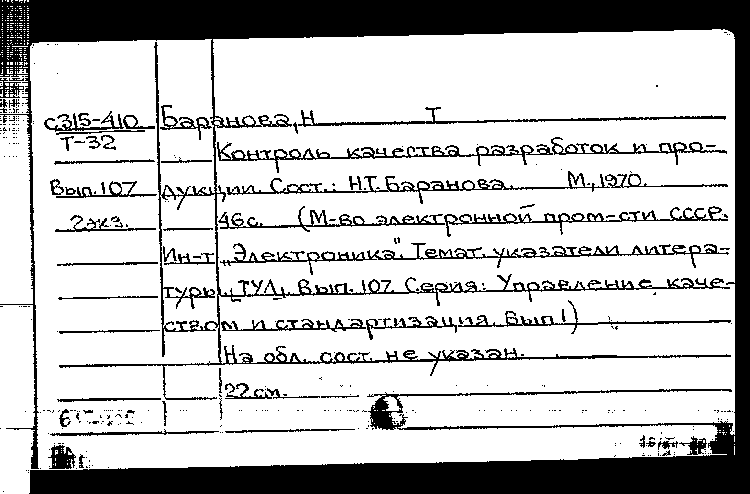 с315-410 Баранова, Н Т
Т-32
Контроль качества разработок и про-
Вып. 107 дукции. Сост.: Н.Т. Баранова. М., 1970.
2 экз. 46 с. (М-во электронной пром-сти СССР.
Ин-т „Электроника". Темат. указатели литера-
туры [ТУЛ]. Вып. 107. Серия: Управление каче-
ством и стандартизация. Вып 1)
На обл. сост. не указан.
22 см.